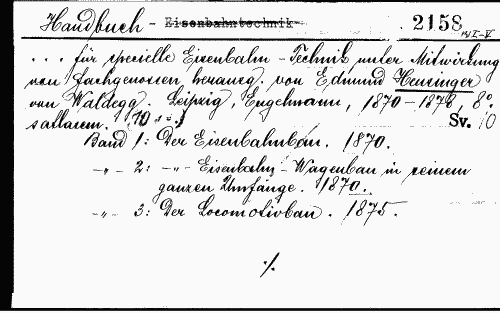 Handbuch - Eisenbahntechnik- 2158 IV I-V
... für specielle Eisenbahn-Technik unter Mitwirkung
von Fachgenossen herausg. von Edmund Heusinger
von Waldegg. Leipzig, Engelmann, 1870-1878, 8°
10 Sv. 10
Band 1: Der Eisenbahnbau. 1870.
-„- 2: -„- Eisenbahn-Wagenbau in seinem
ganzen Umfange. 1870.
-„- 3: Der Locomotivbau. 1875.
./.